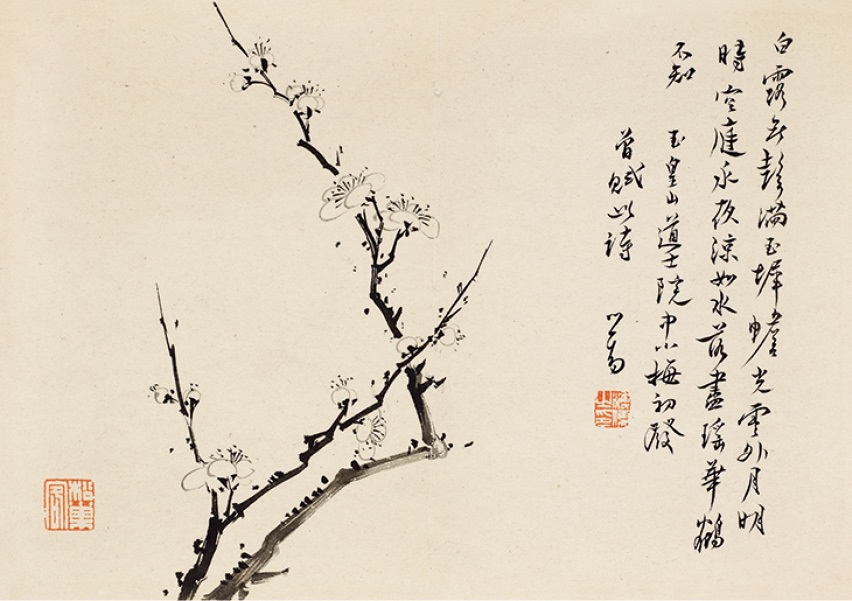 白露无聲滿玉墀蟾光雲外月明
時空庭永夜涼如水落盡瑤華鶴
不知 玉皇山道士院中小梅初發
曾賦此詩 心畬
松巢客